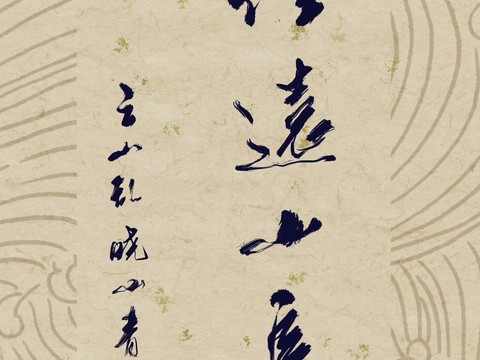 但遠山長
云山乱晓山青